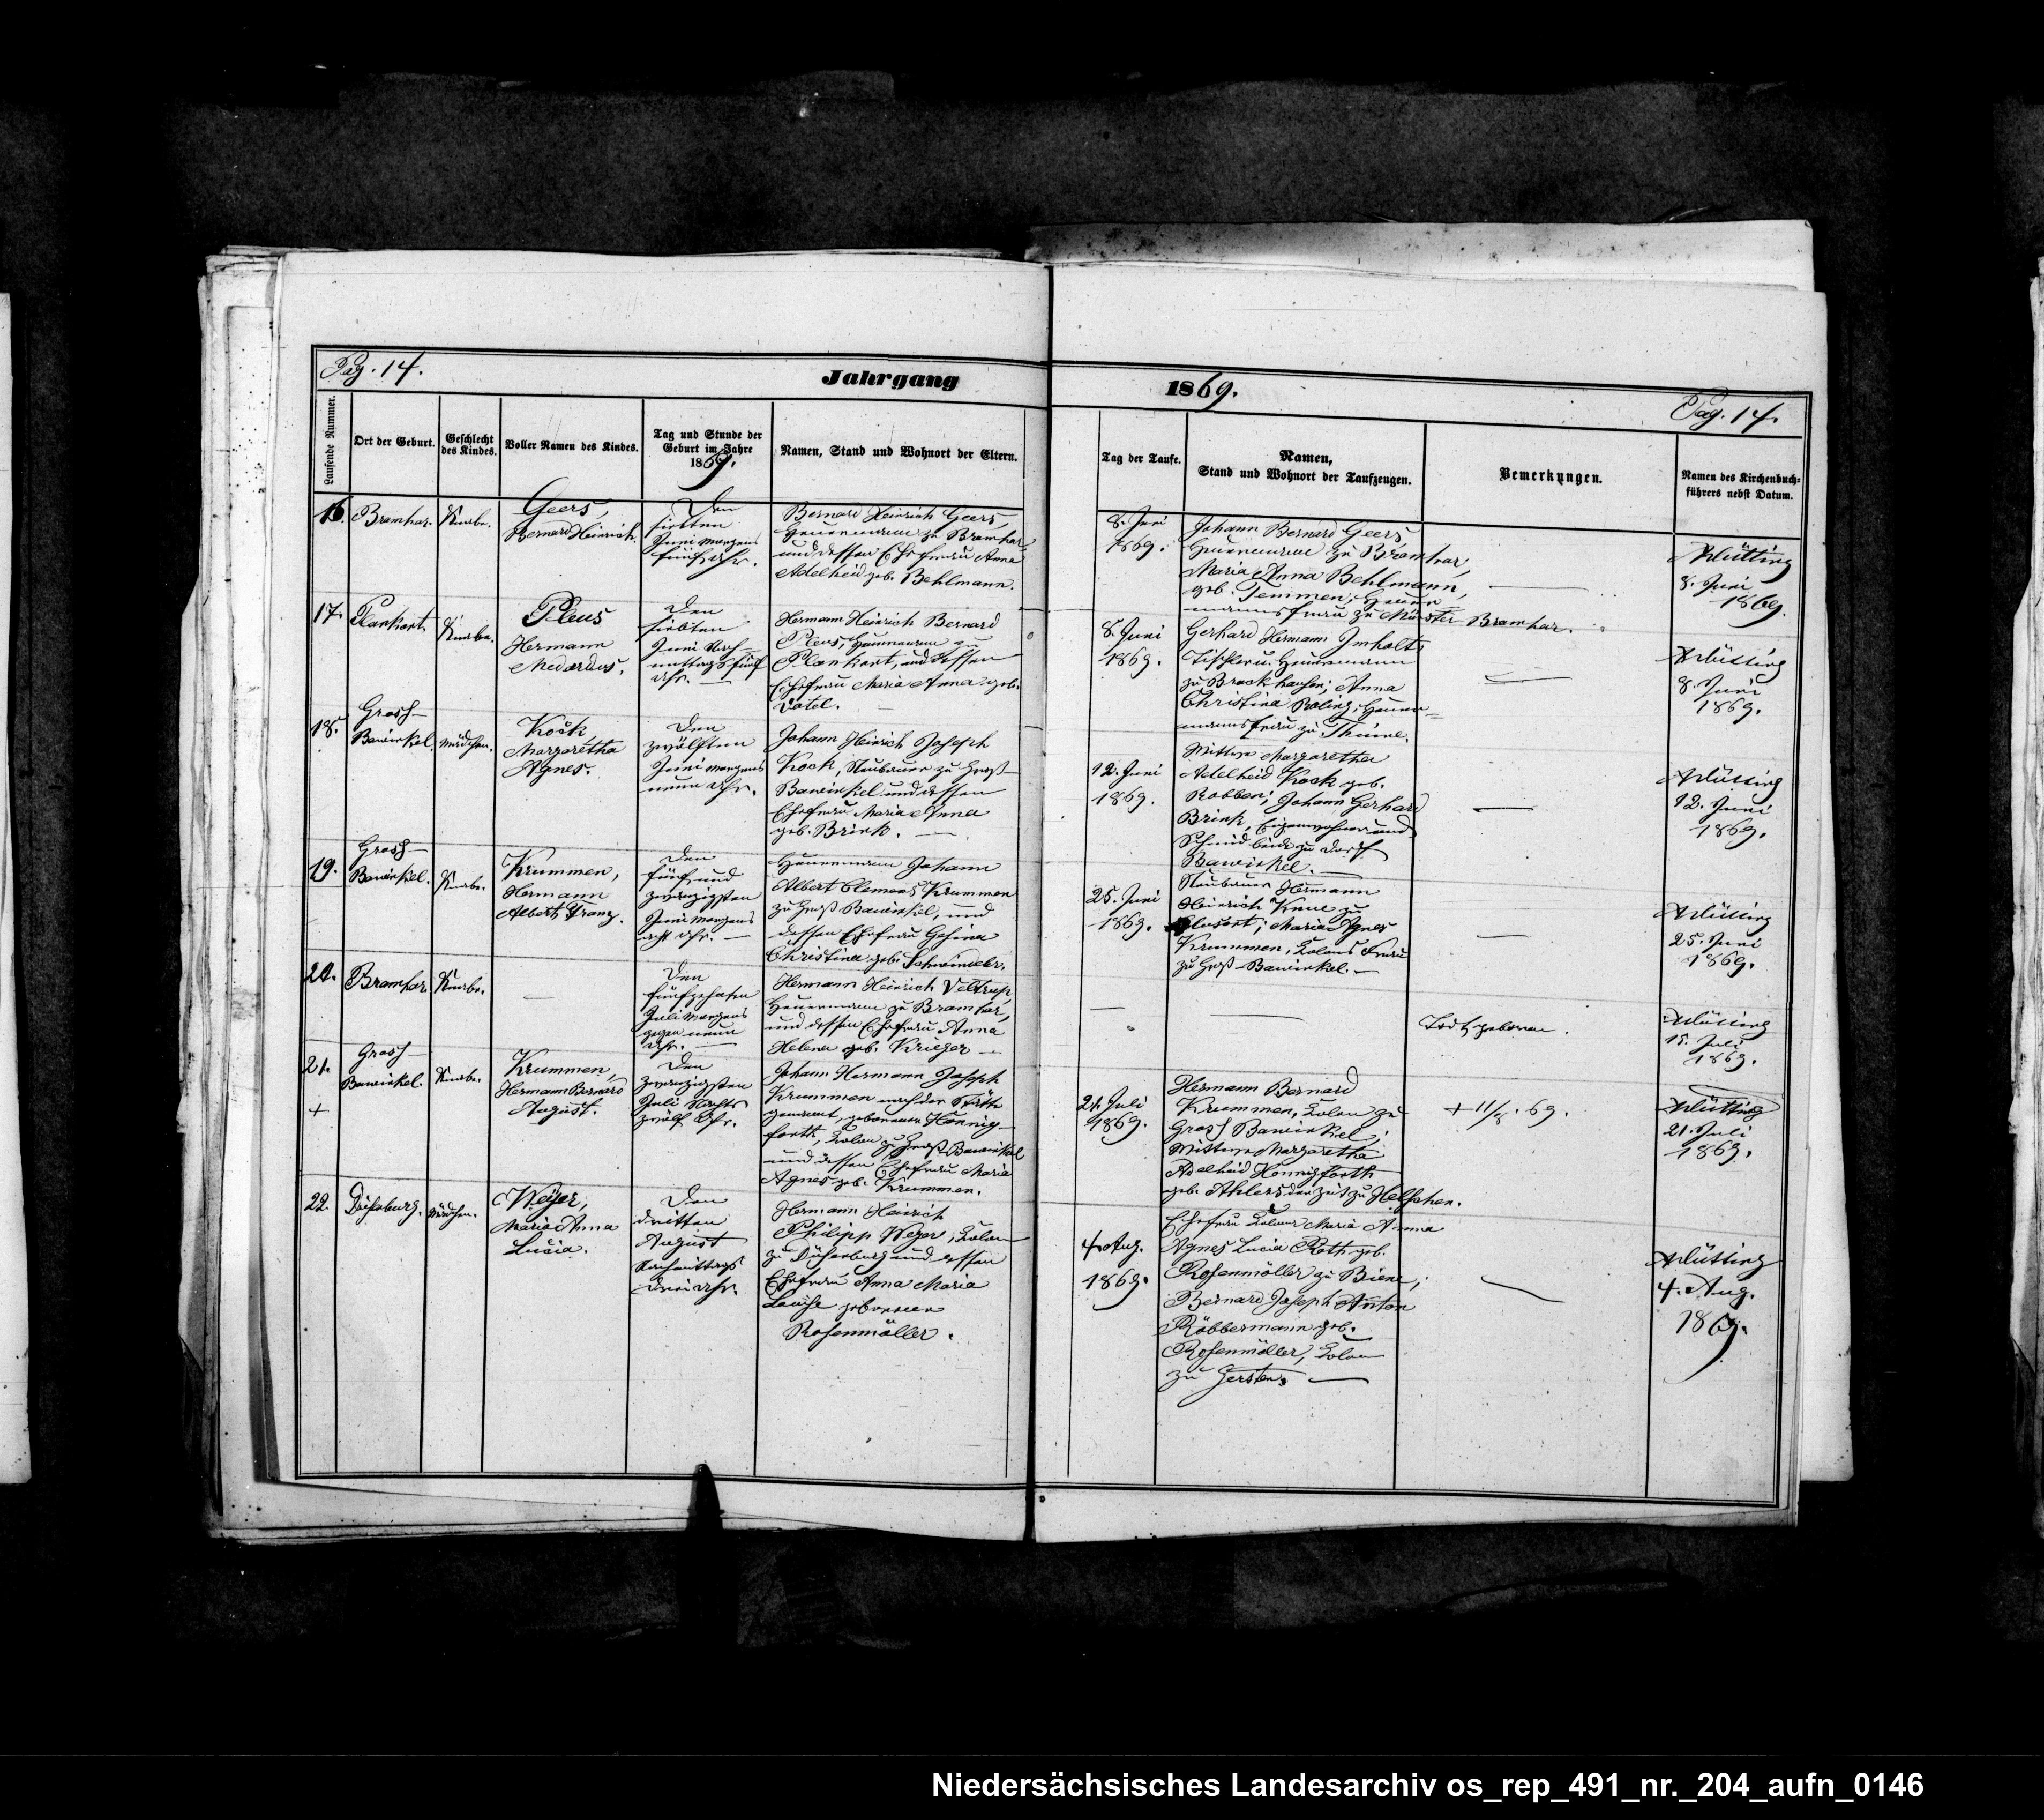 Pag. 14.
Jahrgang
1869.
Pag. 14.
Laufende Nummer.
Ort der Geburt.
Geschlecht
des Kindes.
Voller Namen des Kindes.
Tag und Stunde der
Geburt im Jahre
1869.
Namen, Stand und Wohnort der Eltern.
Tag der Taufe.
Namen,
Stand und Wohnort der Taufzeugen.
Bemerkungen.
Namen des Kirchenbuch-
führers nebst Datum.
16.
Bramhar.
Knabe.
Geers,
Bernard Heinrich.
Den
siebten
Juni Morgens
fünf Uhr.
Bernard Heinrich Geers,
Heuermann zu Bramhar
und dessen Ehefrau Anna
Adelheid geb. Behlmann.
8. Juni
1869.
Johann Bernard Geers,
Heuermann zu Bramhar,
Maria Anna Behlmann,
geb. Temmen, Heuer
mannsfrau zu Münster Bramhar.
8. Juni
1869.
17.
Plankort.
Knabe.
Pleus
Hermann
Medardus.
Den
siebten
Juni Nach-
mittags fünf
Uhr.
Hermann Heinrich Bernard
Pleus, Heuermann zu
Plankort, und dessen
Ehefrau Maria Anna geb.
8. Juni
1869.
Gerhard Hermann Imholt,
Tischler u. Heuermann
zu Brockhausen; Anna
Christina Roling, Heuer-
mannsfrau zu Thuine.
8. Juni
1869.
18.
Gross-
Bawinkel.
Mädchen.
Kock
Margaretha
Agnes.
Den
zwölften
Juni Morgens
neun Uhr.
Johann Heinrich Joseph
Kock, Neubauer zu Groß-
Bawinkel und dessen
Ehefrau Maria Anna
geb. Brink.
12. Juni
1869.
Wittwe Margaretha
Adelheid Kock geb.
Robben; Johann Gerhard
Brink, Eigenwohner und
Schmid beide zu Dorf
Bawinkel.
12. Juni
1869.
19.
Gross-
Bawinkel.
Knabe.
Krummen,
Hermann
Albert Franz.
Den
fünf und
zwanzigsten
Juni Morgens
acht Uhr.
Heuermann Johann
Albert Clemens Krummen
zu Groß Bawinkel, und
dessen Ehefrau Gesina
Christina geb.
25. Juni
1869.
Neubauer Hermann
Heinrich
Clusort; Maria Agnes
Krummen, Colons Frau
zu Groß-Bawinkel.
25. Juni
1869.
20.
Bramhar.
Knabe.
Den
fünfzehnten
Juli Morgens
gegen neun
Uhr.
Hermann Heinrich Veltrup,
Heuermann zu Bramhar,
und dessen Ehefrau Anna
Helena geb. Krieger
Todt geboren.
15. Juli
1869.
21.
+
Gross-
Bawinkel.
Knabe.
Krummen,
Hermann Bernard
August.
Den
zwanzigsten
Juli Nachts
zwölf Uhr.
Johann Hermann Joseph
Krummen nach der Stätte
genannt, geborener Hennig-
forth, Colon zu Groß-Bawinkel
und dessen Ehefrau Maria
Agnes geb. Krummen.
21. Juli
1869.
Hermann Bernard
Krummen, Colon zu
Gross Bawinkel;
Wittwe Margaretha
Adelheid Hennigforth
geb. Ahlers der Zeit zu Helschen.
+ 11/8. 69.
21. Juli
1869.
22.
Duisenburg.
Mädchen.
Weyer,
Maria Anna
Lucia.
Den
dritten
August
Nachmittags
drei Uhr.
Hermann Heinrich
Philipp Weyer, Colon
zu Duisenburg und dessen
Ehefrau Anna Maria
Louise geborener
Rosenmöller.
4. Aug.
1869.
Ehefrau Colons Maria Anna
Agnes Lucia Roth geb.
Rosenmöller zu Biene,
Bernard Joseph Anton
Röbbermann geb.
Rosenmöller, Colon
zu Gersten.
4. Aug.
1869.
Niedersächsisches Landesarchiv os_rep_491_nr._204_aufn_0146